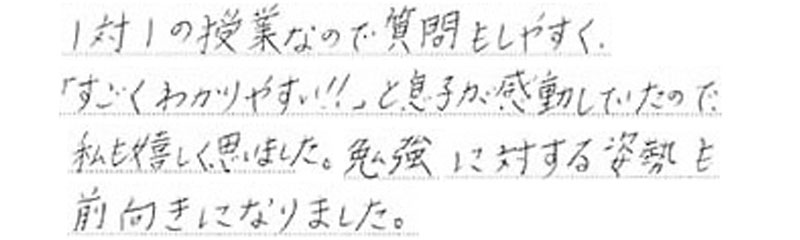 1対1の授業なので質問もしやすく、
「すごくわかりやすい!!」と息子が感動していたので
私も嬉しく思いました。勉強に対する姿勢も
前向きになりました。